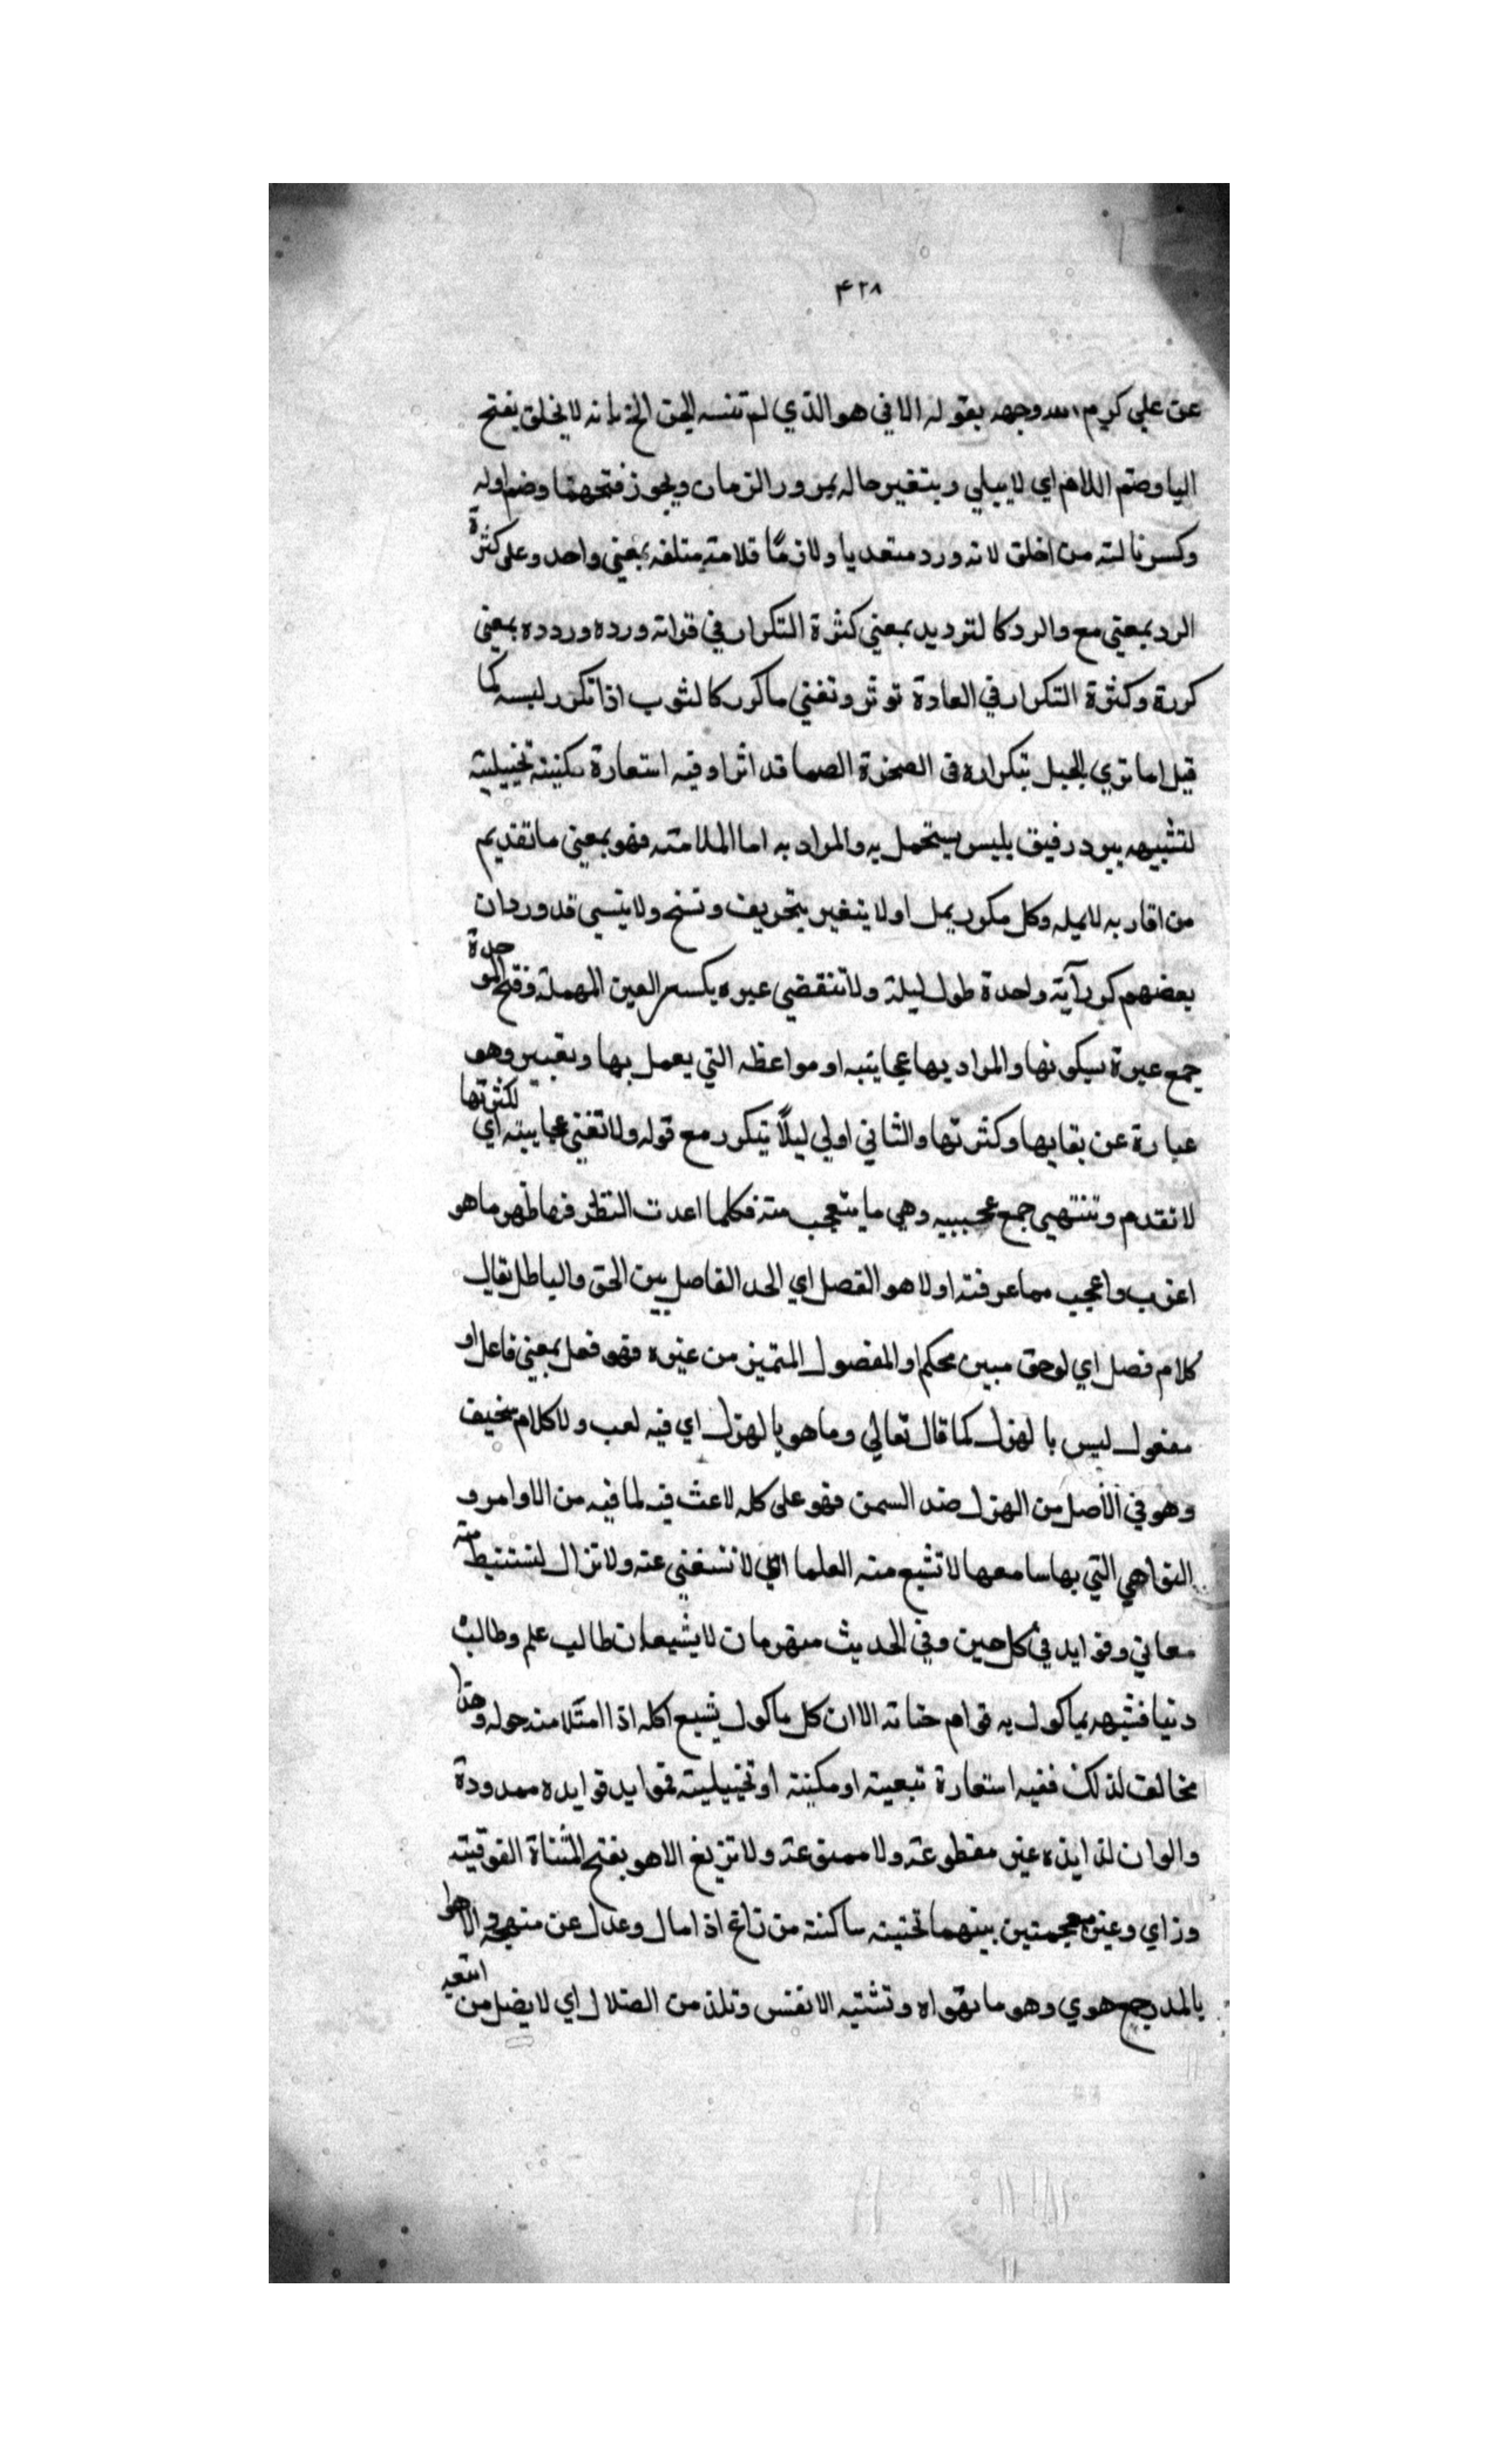 ٤٢٨
عن علي كرم الله وجهه بقوله الاتي هو الذي لم تنسه الجن الخ بانه لا يخلق بفتح
اليا وضم اللام اي لا يبلي ويتغير حاله بمرور الزمان ويجوز فتحهما وضم اوله
وكسر ثالثه من اخلق لانه ورد متعديا ولازمًا وعلى كثرة
الرد بمعني مع والرد كالترديد بمعني كثرة التكرار في قراته ورده وردده بمعني
كررة وكثرة التكرار في العادة توثر وتفني ما كرر كالثوب اذا تكرر لبسه كما
قيل اما تري الحبل بتكراره في الصخرة الصما قد اثرا وفيه استعارة مكنية تخييلية
لتشبيهه ببرد رفيق يلبس يتجمل به والمراد به اما الملامته فهو بمعني ما تقديم
من اقاربه لا يمله وكل مكرر يمل او لا يتغير بتحريف ونسخ ولا ينسي قد ورد ان
بعضهم كرر آية واحدة طول ليلة ولا تنقضي عبره بكسر العين المهملة وفتح الموحدة
جمع عبرة بسكونها والمراد بها عجايبه او مواعظه التي يعمل بها وتعبير وهو
عبارة عن بقايها وكثرتها والثاني اولي ليلًا يتكرر مع قوله ولا تفني عجايبه اي لكثرتها
لا تقدم وتنتهي جمع عجيبيه وهي ما يتعجب منه فكلما اعدت النظر فيها ظهر ما هو
اغرب واعجب مما عرفته اولا هو الفصل اي الحد الفاصل بين الحق والباطل يقال
كلام فصل اي لوحق مبين محكم او المفصول المتميز من غيره فهو فعل بمعني فاعل او
مفعول ليس بالهزل كما قال تعالي وما هو بالهزل اي فيه لعب ولا كلام سخيف
وهو في الأصل من الهزل ضد السمن فهو على كله لا عث فيه لما فيه من الاوامر و
النواهي التي بها سامعها لا تشبع منه العلما اي لا تستغني عنه ولا تزال تستنبط منه
معاني وفوايد في كل حين وفي الحديث منهومان لا يشبعان طالب علم وطالب
دنيا فشبهه بماكول به قوام حناته الا ان كل ماكول يشبع اكله اذا امتلا منه حوله وهذا
مخالف لذلك ففيه استعارة تبعية او مكنية او تخييلية فموايد فوايده ممدودة
والوان لذايذه غير مقطوعة ولا ممنوعة ولا تزيغ الاهو بفتح المثناة الفوقية
وزاي وغين معجمتين بينهما تحتية ساكنة من زاغ اذا مال وعدل عن منهجه والاهوا
بالمد جمع هوي وهو ما تهواه وتشتيه الانفس وتلذ من الضلال اي لا يضل من اتبعه